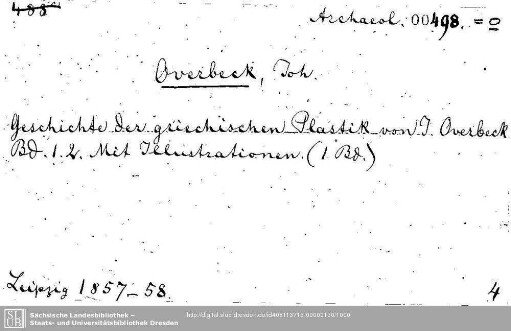 488
Archaeol. 00498. = 0
Overbeck, Joh.
Geschichte der griechischen Plastik von J. Overbeck
Bd. 1. 2. Mit Illustrationen. (1 Bd.)
Leipzig 1857-58.
4
Sächsische Landesbibliothek –
Staats- und Universitätsbibliothek Dresden